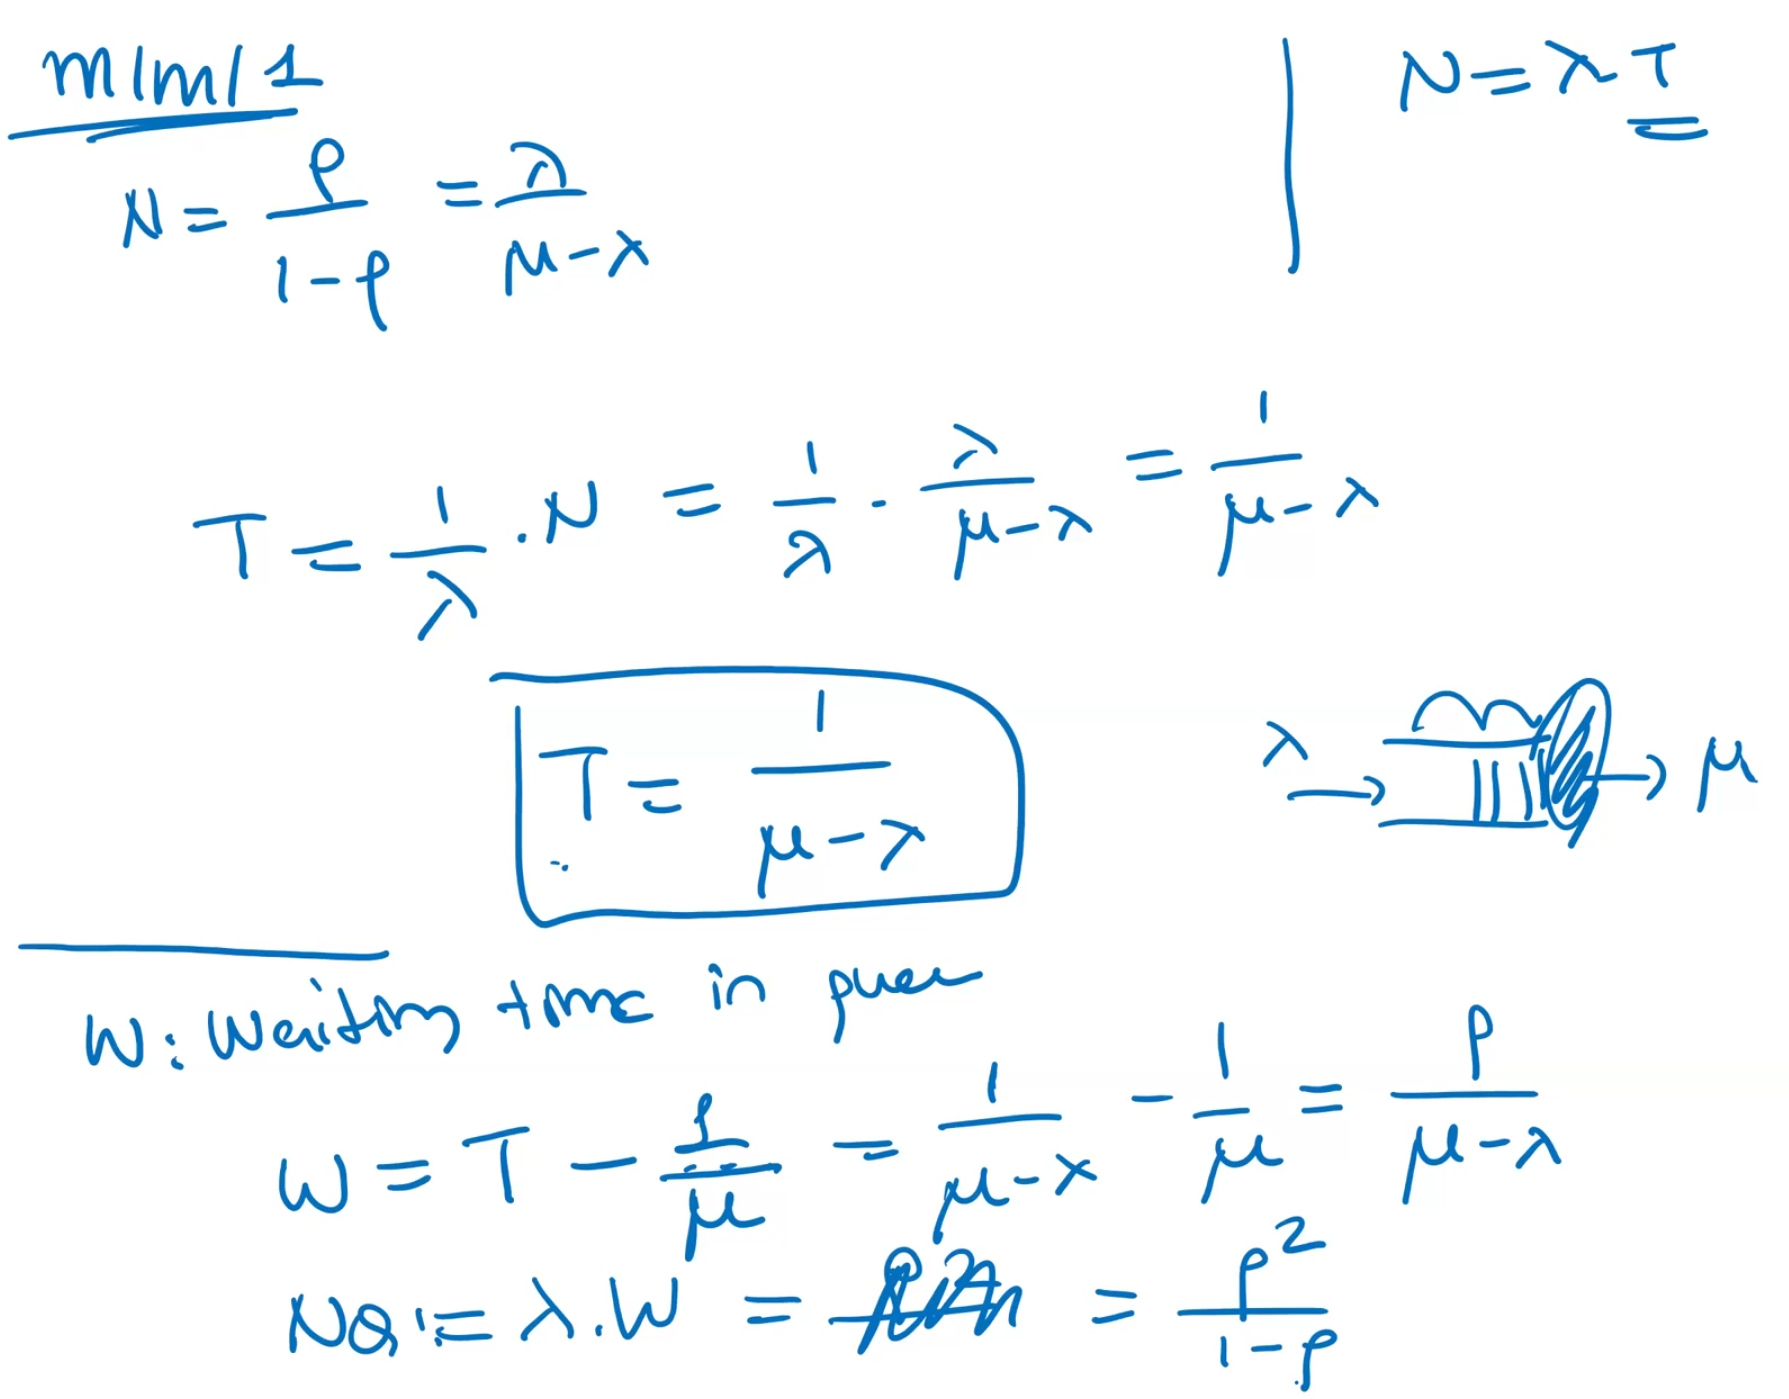 M/M/1
N = λT
N = ρ/(1-ρ) = λ/(μ-λ)
T = 1/λ . N = 1/λ . λ/(μ-λ) = 1/(μ-λ)
T = 1/(μ-λ)
λ → → μ
W: Waiting time in
W = T - 1/μ = 1/(μ-λ) - 1/μ = ρ/(μ-λ)
NQ = λ.W = = ρ²/(1-ρ)